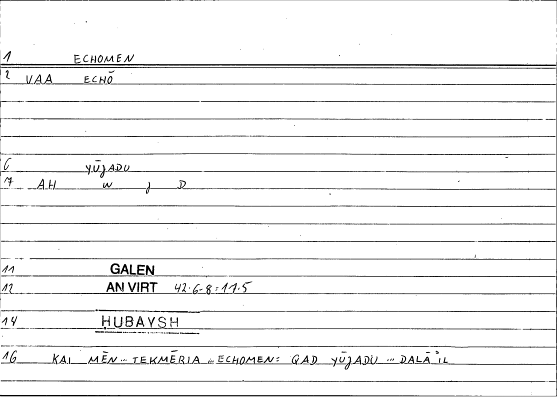 1 ECHOMEN
2 VAA ECHŌ
6 YŪJADU
7 AH W J D
11 GALEN
12 AN VIRT 42.6-8=11.5
14 HUBAYSH
16 KAI MĒN... TEKMĒRIA... ECHOMEN: QAD YŪJADU ... DALĀ'IL